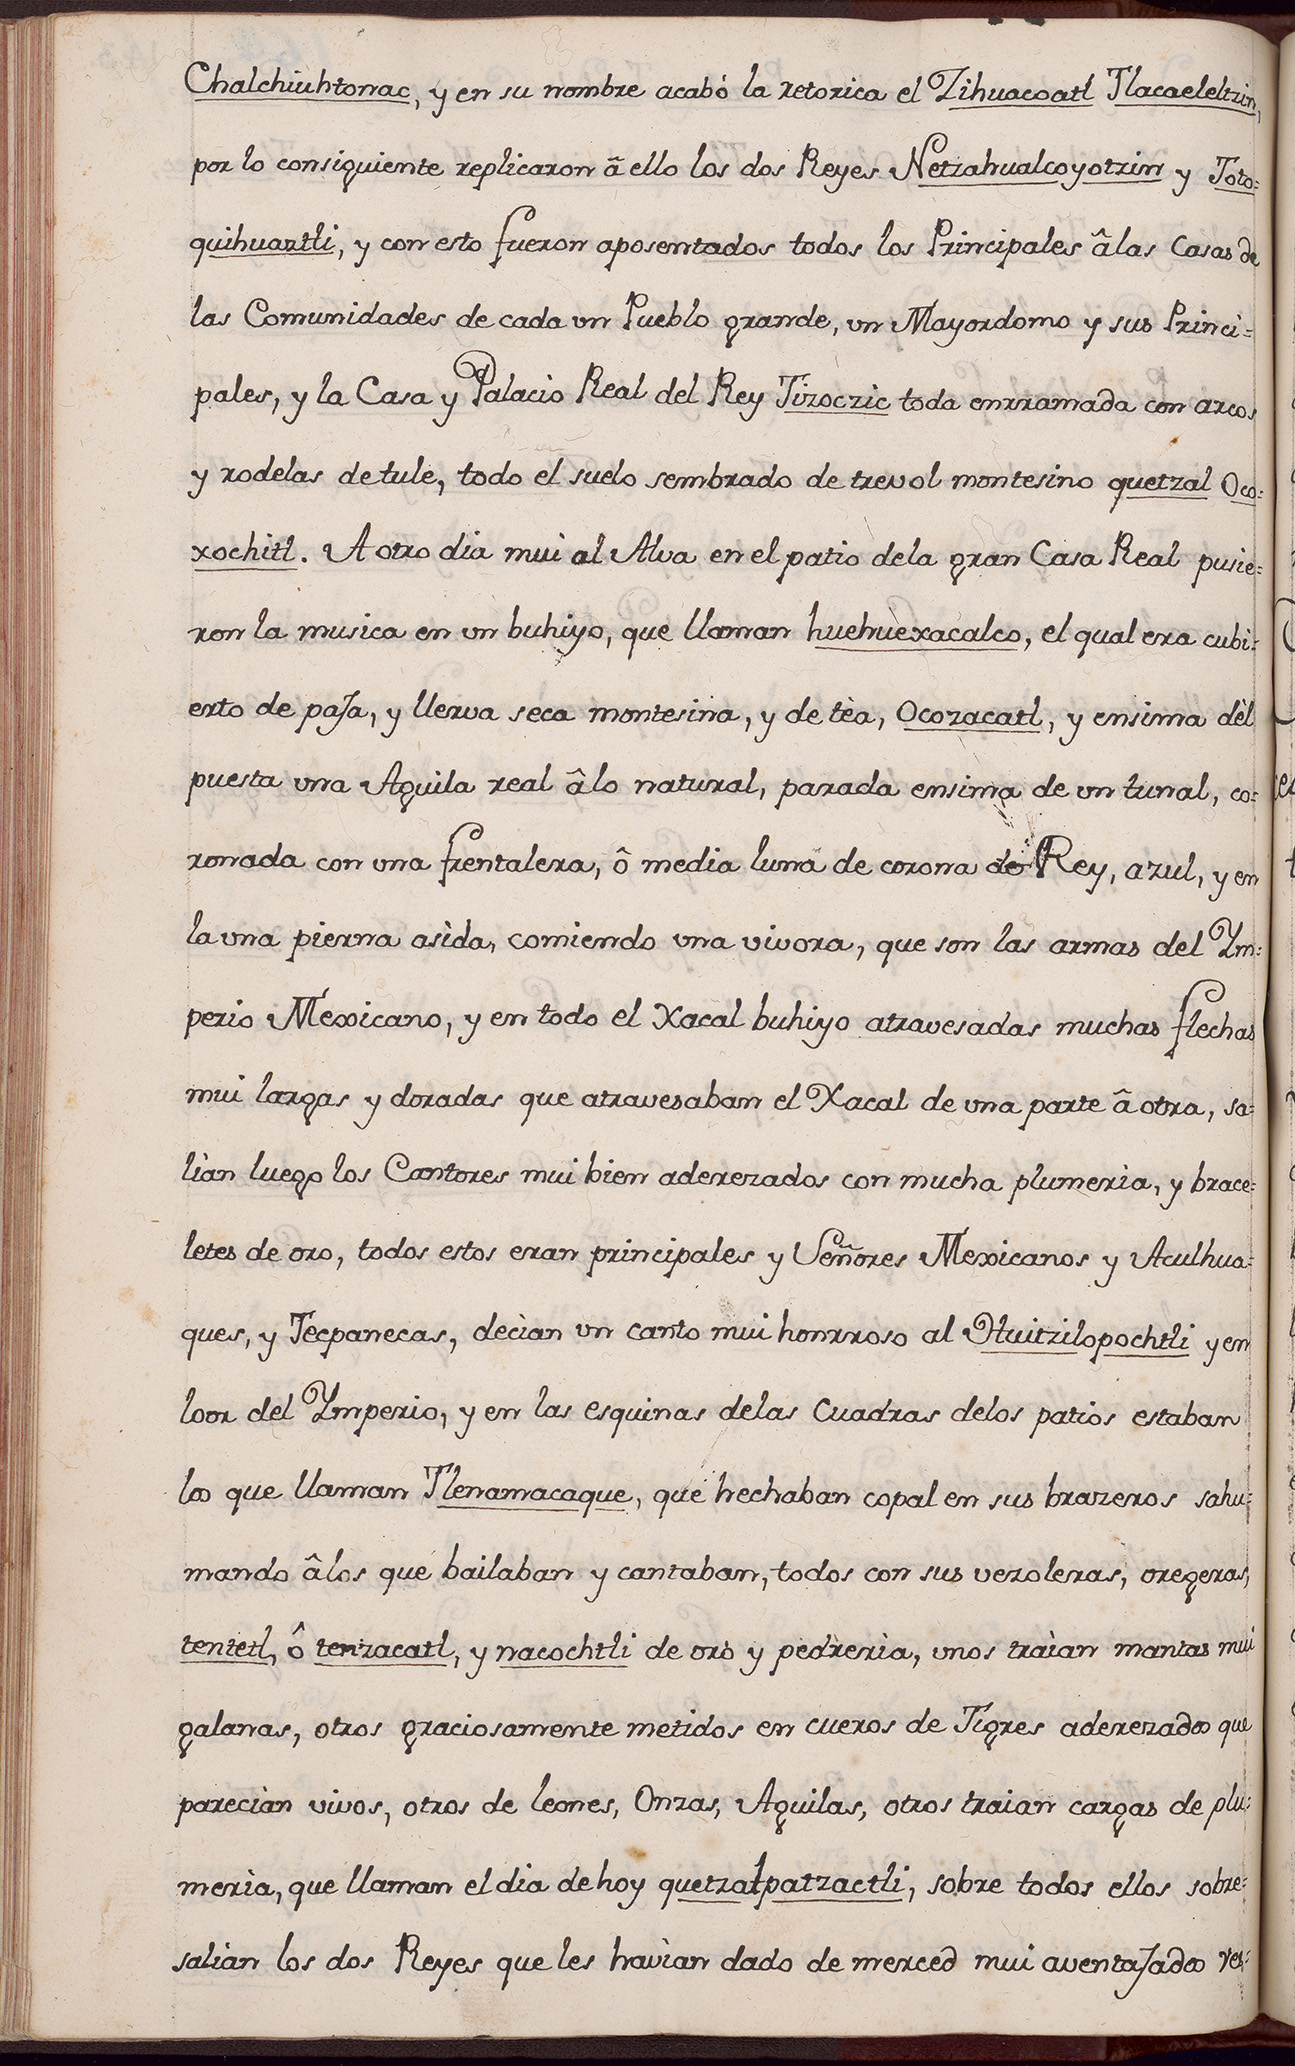 Chalchiuhtonac, y en su nombre acabó la retorica el Zihuacoatl Tlacaeleltzin,
por lo consiguiente replicaron â ello los dos Reyes Netzahualcoyotzin y Toto=
quihuaztli, y con esto fueron aposentados todos los Principales âlas Casas de
las Comunidades de cada un Pueblo grande, un Mayordomo y sus Princi=
pales, y la Casa y Palacio Real del Rey Tizoczic toda enrramada con arcos
y rodelas de tule, todo el suelo sembrado de trevol montesino quetzal Oco=
xochitl. A otro dia mui al Alva en el patio dela gran Casa Real pusie=
ron la musica en un buhiyo, que llaman huehuexacalco, el qual era cubi=
erto de paja, y llerva seca montesina, y de tèa, Ocozacatl, y ensima dèl
puesta una Aguila real âlo natural, parada ensima de un tunal, co=
ronada con una frentalera, ô media luna de corona de Rey, azul, y en
la una pierna asìda, comiendo una vivora, que son las armas del Ym=
perio Mexicano, y en todo el Xacal buhiyo atravesadas muchas flechas
mui largas y doradas que atravesaban el Xacal de una parte â otra, sa=
lìan luego los Cantores mui bien aderezados con mucha plumerìa, y brace=
letes de oro, todos estos eran principales y Señores Mexicanos y Aculhua=
ques, y Tecpanecas, decìan un canto mui honrroso al Huitzilopochtli y en
loor del Ymperio, y en las esquinas delas Cuadras delos patios estaban
los que llaman Tlenamacaque, que hechaban copal en sus brazeros sahu=
mando âlos que bailaban y cantaban, todos con sus vezoleras, oregeras,
tentetl, ô tentzacatl, y nacochtli de oro y pedrerìa, unos traìan mantas mui
galanas, otros graciosamente metidos en cueros de Tigres aderezados que
parecìan vivos, otros de leones, Onzas, Aguilas, otros traian cargas de plu=
merìa, que llaman el dia de hoy quetzalpatzactli, sobre todos ellos sobre=
salian los dos Reyes que les havìan dado de merced mui aventajados ves=